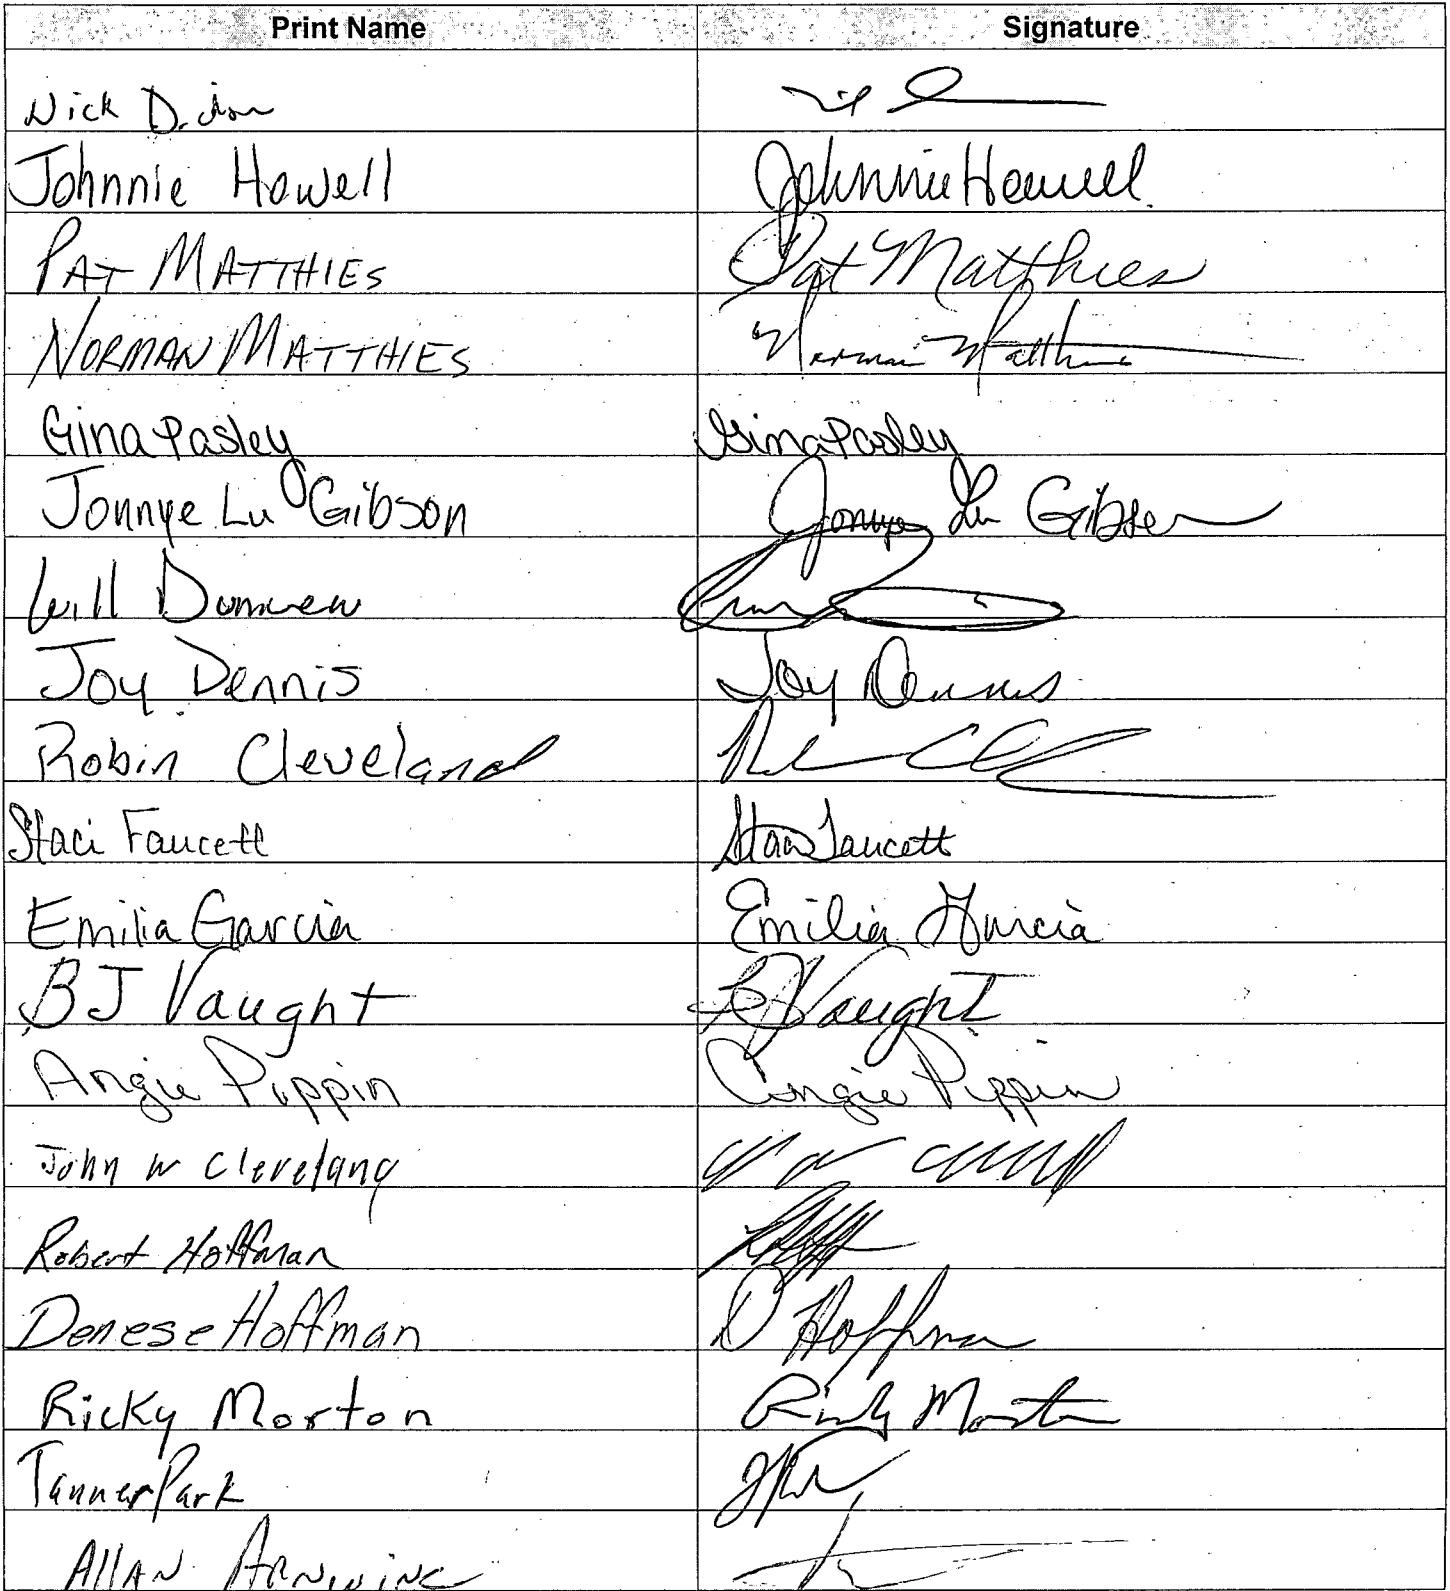 Print Name Signature
Nick
Johnnie Howell Johnnie Howell
PAT MATTHIES Pat Matthies
NORMAN MATTHIES Norman Matthies
Gina Pasley Gina Pasley
Jonnye Lu Gibson Jonnye Lu Gibson
Will
Joy Dennis Joy Dennis
Robin Cleveland
Staci Faucett Staci Faucett
Emilia Garcia Emilia Garcia
BJ Vaught BJ Vaught
Angie Pippin Angie Pippin
John W Cleveland
Robert Hoffman
Denese Hoffman D Hoffman
Ricky Morton Ricky Morton
Tanner Park
ALLAN